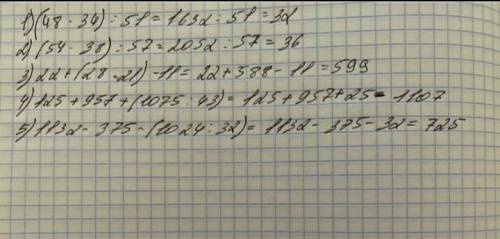 1) (48 · 34) : 51 = 1632 : 51 = 32
2) (54 · 38) : 57 = 2052 : 57 = 36
3) 22 + (28 · 21) - 11 = 22 + 588 - 11 = 599
4) 125 + 957 + (1075 : 43) = 125 + 957 + 25 = 1107
5) 1132 - 375 - (1024 : 32) = 1132 - 375 - 32 = 725